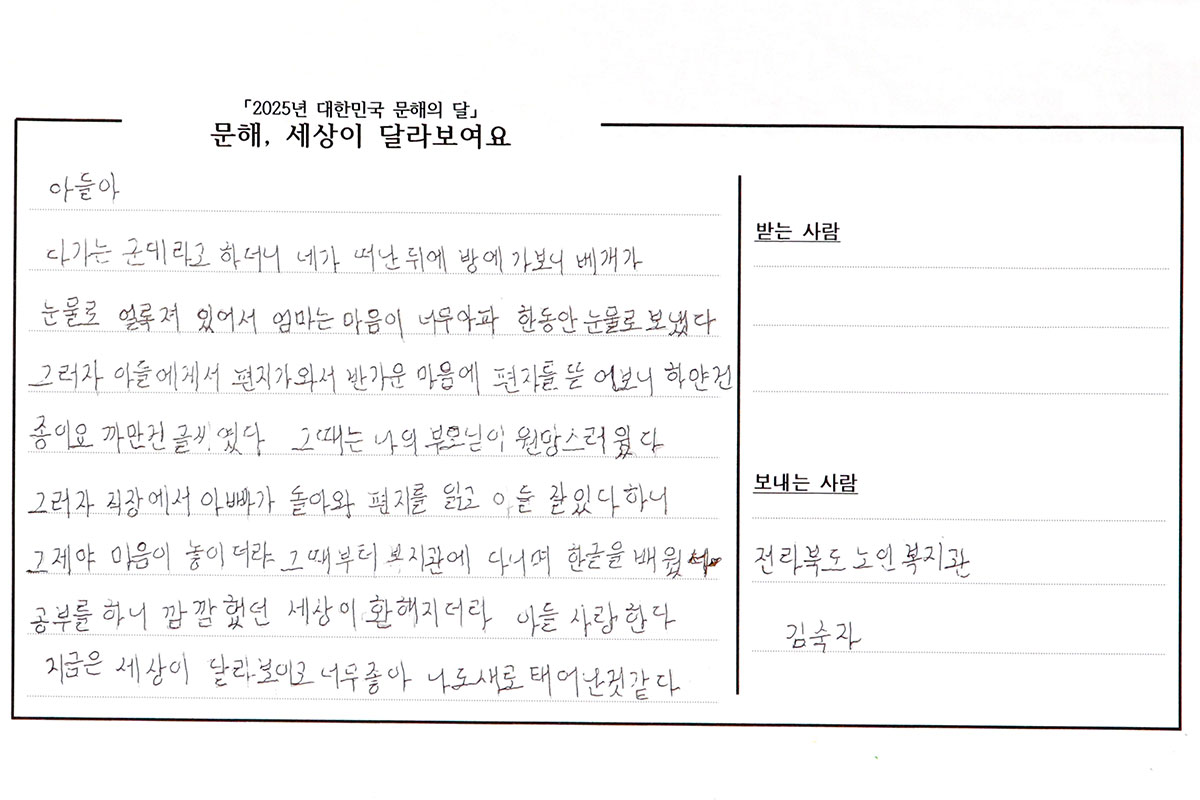 「2025년 대한민국 문해의 달」
문해, 세상이 달라보여요
아들아
다가는 군데라고 하더니 네가 떠난뒤에 방에 가보니 베개가
눈물로 얼룩져 있어서 엄마는 마음이 너무아파 한동안 눈물로 보냈다
그러자 아들에게서 편지가와서 반가운 마음에 편지를 뜯어보니 하얀건
종이요 까만건 글씨였다 그때는 나의 부모님이 원망스러웠다
그러자 직장에서 아빠가 돌아와 편지를 읽고 아들 잘있다하니
그제야 마음이 놓이더라 그때부터 복지관에 다니며 한글을 배웠
공부를 하니 깜깜했던 세상이 환해지더라 아들 사랑한다
지금은 세상이 달라보이고 너무좋아 나도새로태어난것같다
받는 사람
보내는 사람
전라북도노인복지관
김숙자